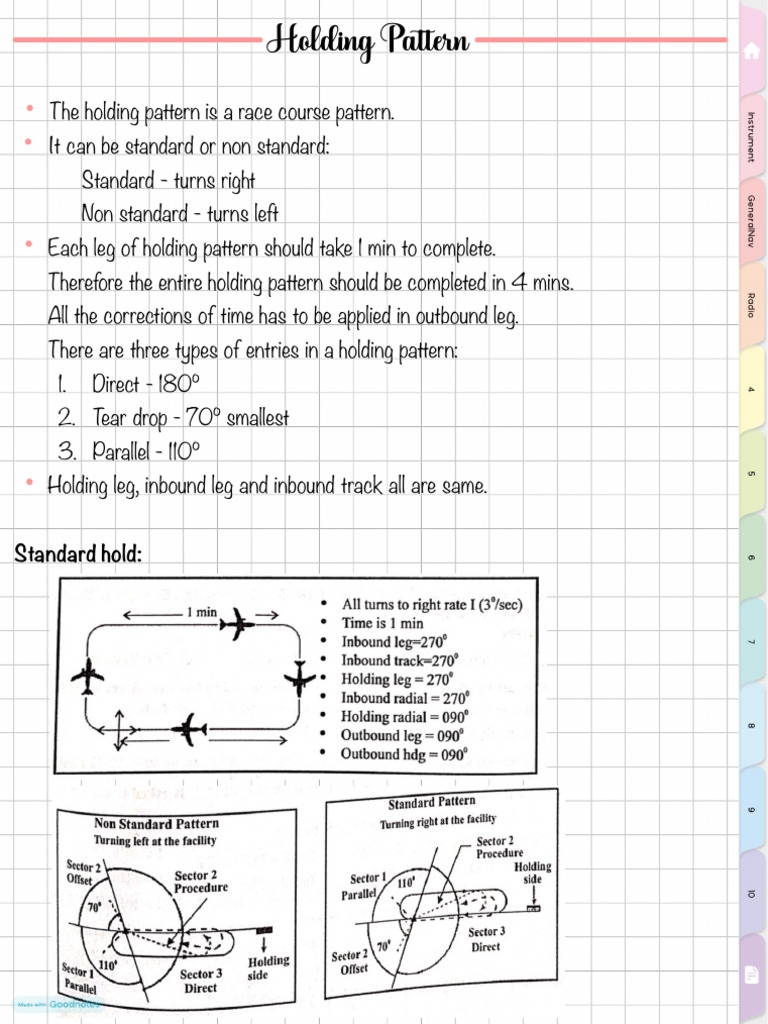 Holding Pattern
• The holding pattern is a race course pattern.
• It can be standard or non standard:
Standard - turns right
Non standard - turns left
• Each leg of holding pattern should take 1 min to complete.
Therefore the entire holding pattern should be completed in 4 mins.
All the corrections of time has to be applied in outbound leg.
There are three types of entries in a holding pattern:
1. Direct - 180°
2. Tear drop - 70° smallest
3. Parallel - 110°
• Holding leg, inbound leg and inbound track all are same.
Standard hold:
1 min
• All turns to right rate I (3⁰/sec)
• Time is 1 min
• Inbound leg=270⁰
• Inbound track=270⁰
• Holding leg = 270⁰
• Inbound radial = 270⁰
• Holding radial = 090⁰
• Outbound leg = 090⁰
• Outbound hdg = 090⁰
Non Standard Pattern
Turning left at the facility
Sector 2
Offset
Sector 2
Procedure
70⁰
110⁰
Sector 1
Parallel
Sector 3
Direct
Holding
side
Standard Pattern
Turning right at the facility
Sector 2
Procedure
Holding
side
Sector 1
Parallel
110⁰
70⁰
Sector 2
Offset
Sector 3
Direct
Instrument
GeneralNav
Radio
4
5
6
7
8
9
10
Made with Goodnotes